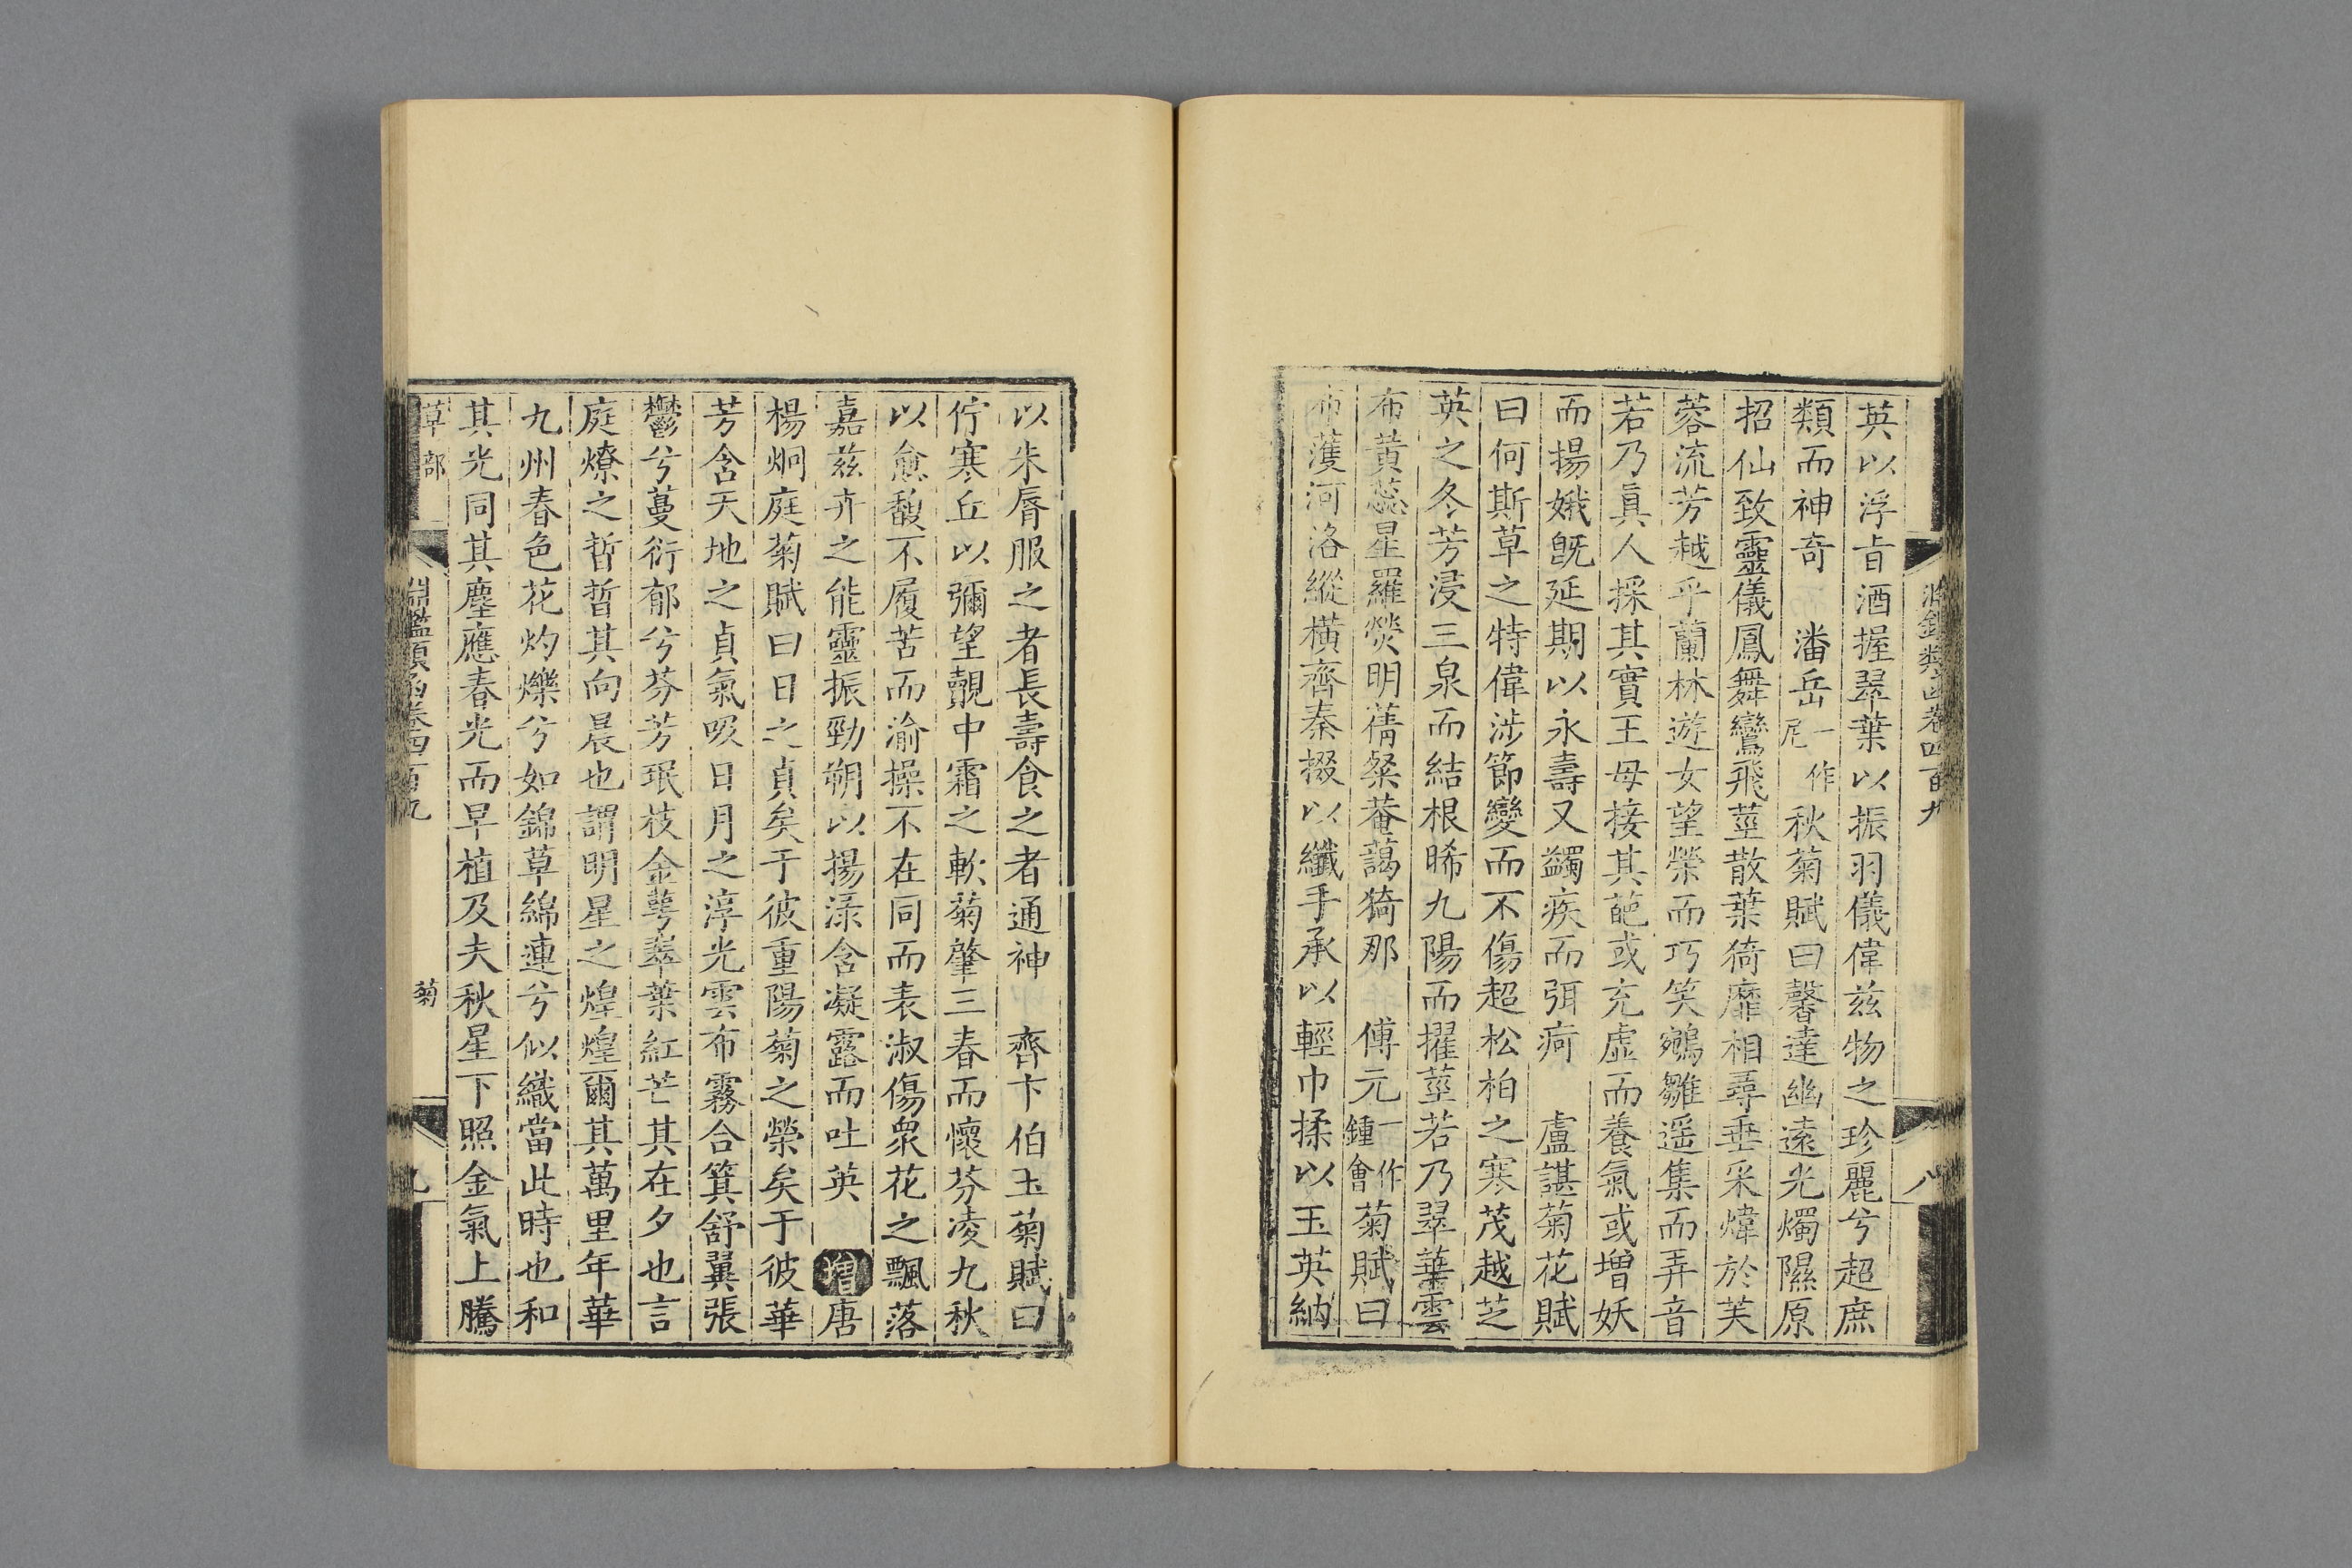 英以浮旨酒握翠葉以振羽儀偉兹物之珍麗兮超庶
類而神奇 潘岳一作尼秋菊賦曰馨達幽遠光燭隰原
招仙致靈儀鳳舞鸞飛莖散葉猗靡相尋垂采煒於芙
蓉流芳越乎蘭林遊女望榮而巧笑鵷雛遥集而弄音
若乃眞人採其實王母接其葩或充虛而養氣或增妖
而揚娥旣延期以永壽又蠲疾而弭痾 盧諶菊花賦
曰何斯草之特偉涉節變而不傷超松柏之寒茂越芝
英之冬芳浸三泉而結根晞九陽而擢莖若乃翠葉雲
布黃蕊星羅熒明蒨粲菴藹猗那 傅元一作鍾會菊賦曰
布濩河洛縱橫齊秦掇以纖手承以輕巾揉以玉英納
淵鑑類函卷四百九
八
以朱脣服之者長壽食之者通神 齊卞伯玉菊賦曰
佇寒丘以彌望覿中霜之軟菊肇三春而懷芬凌九秋
以愈馥不履苦而渝操不在同而表淑傷衆花之飄落
嘉兹卉之能靈振勁朔以揚淥含凝露而吐英 增唐
楊炯庭菊賦曰日之貞矣于彼重陽菊之榮矣于彼華
芳含天地之貞氣吸日月之淳光雲布霧合箕舒翼張
鬱兮蔓衍郁兮芬芳珉枝金萼翠葉紅芒其在夕也言
庭燎之晢晢其向晨也謂明星之煌煌爾其萬里年華
九州春色花灼爍兮如錦草綿連兮似織當此時也和
其光同其塵應春光而早植及夫秋星下照金氣上騰
草部
淵鑑類函卷四百九
菊
九